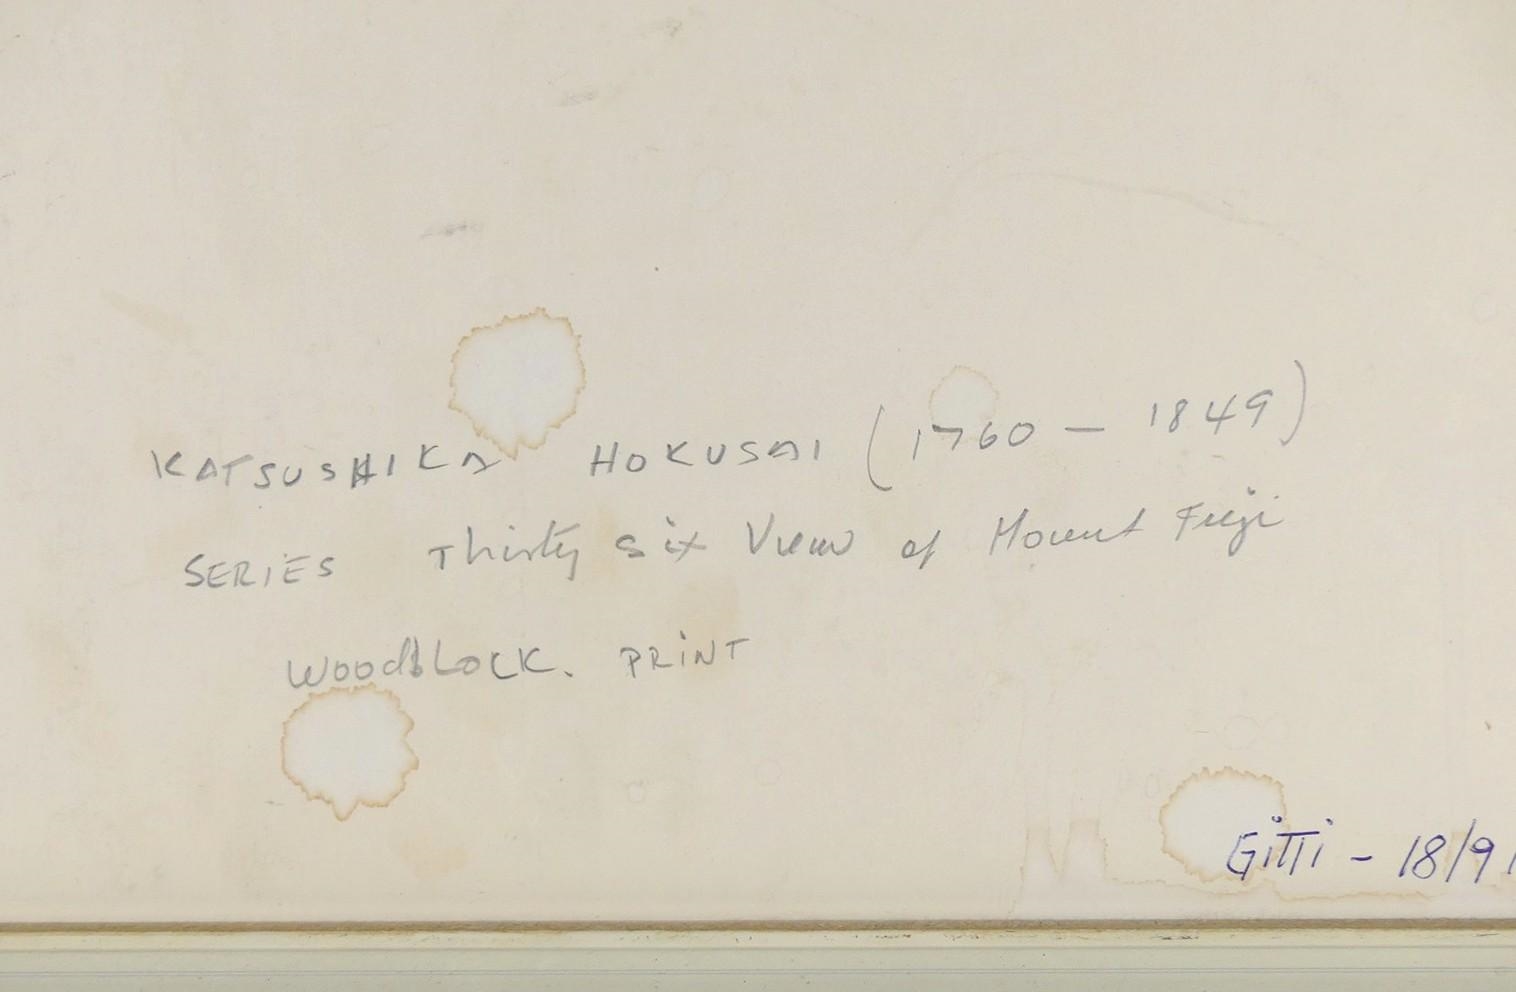 KATSUSHIKA HOKUSAI (1760 - 1849)
SERIES Thirty six View of Mount Fuji
WOODBLOCK. PRINT
Gitti - 18/9